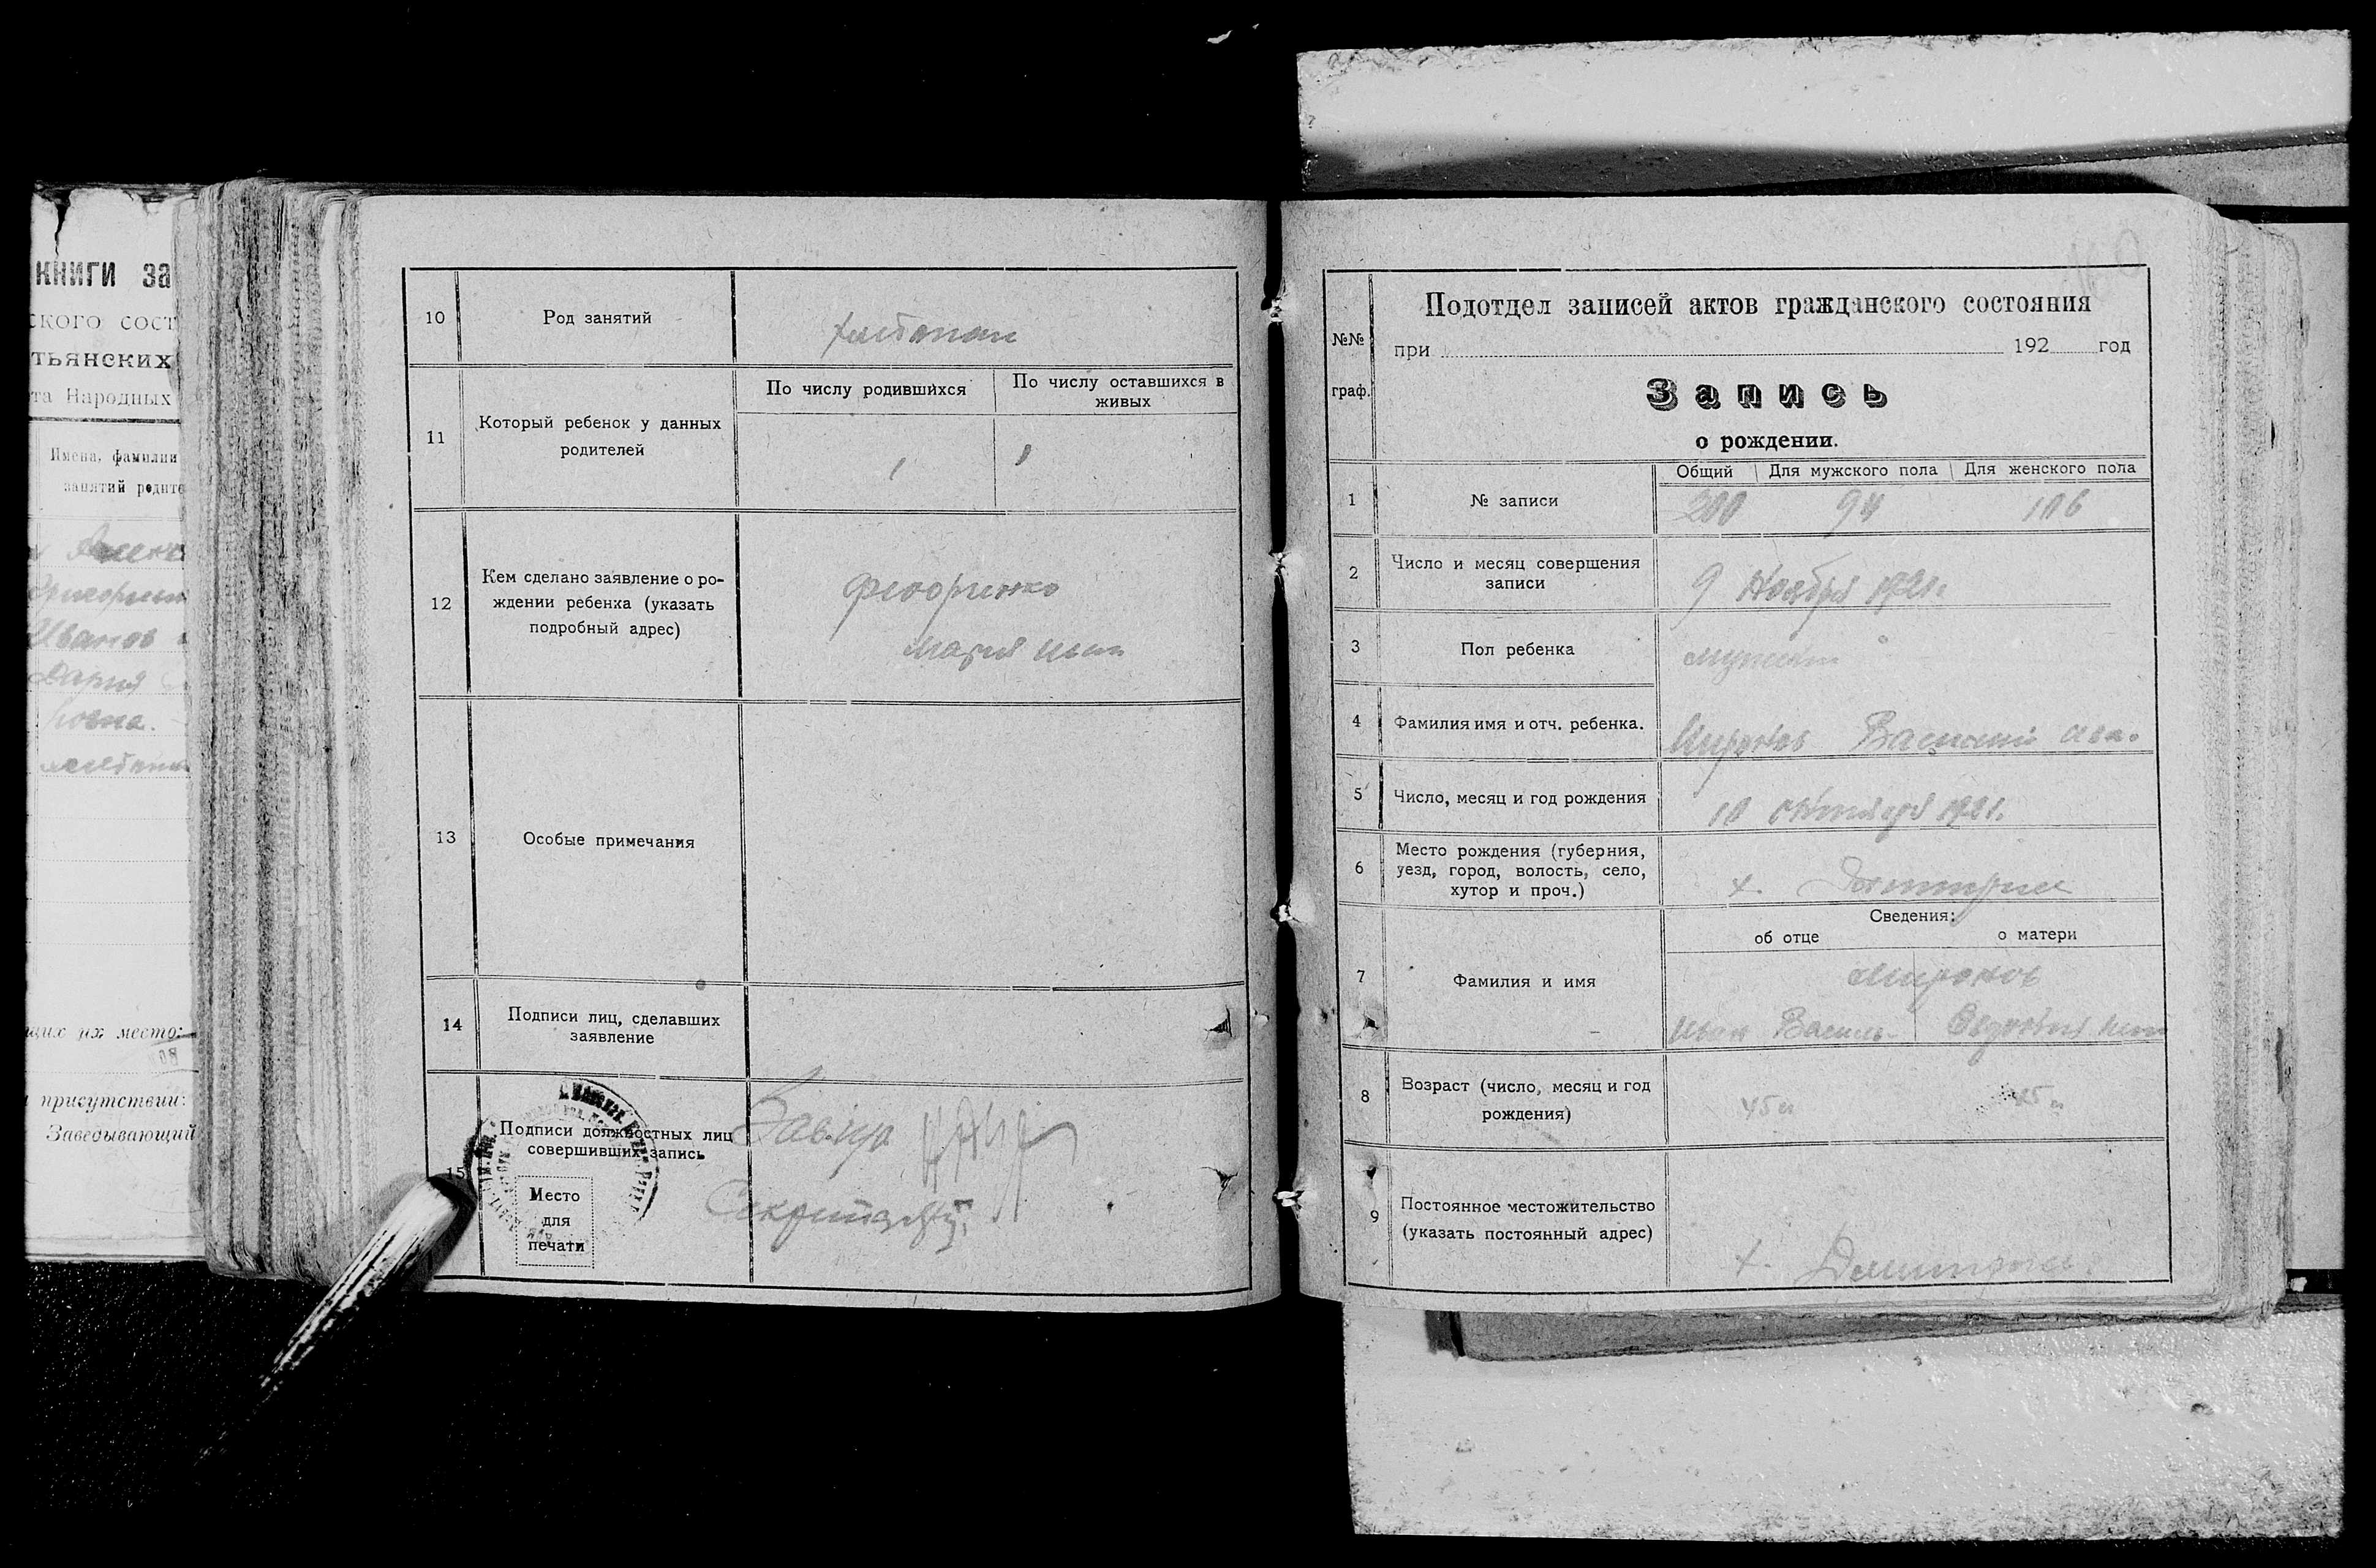 книги за
ского сост
тьянских
та Народных
Имена, фамилии
занятий родите
Иванов
Дария
щих их место:
присутствии:
Заведывающий
10 Род занятий хлебопаш
11 Который ребенок у данных родителей
По числу родившихся По числу оставшихся в живых
1 1
12 Кем сделано заявление о ро-
ждении ребенка (указать
подробный адрес)
Федоренко
Мария Иван
13 Особые примечания
14 Подписи лиц, сделавших
заявление
15 Подписи должностных лиц
совершивших запись
Место
для
печати
Зав.
Секретарь
№№
граф.
Подотдел записей актов гражданского состояния
при 192 год
Запись
о рождении.
Общий Для мужского пола Для женского пола
1 № записи 200 94 106
2 Число и месяц совершения
записи
9 Ноября 1921г.
3 Пол ребенка мужск
4 Фамилия имя и отч. ребенка. Миронов Василий Ива.
5 Число, месяц и год рождения 10 Октября 1921.
6 Место рождения (губерния,
уезд, город, волость, село,
хутор и проч.)
х.
Сведения:
об отце о матери
7 Фамилия и имя
Миронов
Иван Василь
8 Возраст (число, месяц и год
рождения)
45 л 45 л
9 Постоянное местожительство
(указать постоянный адрес)
х.